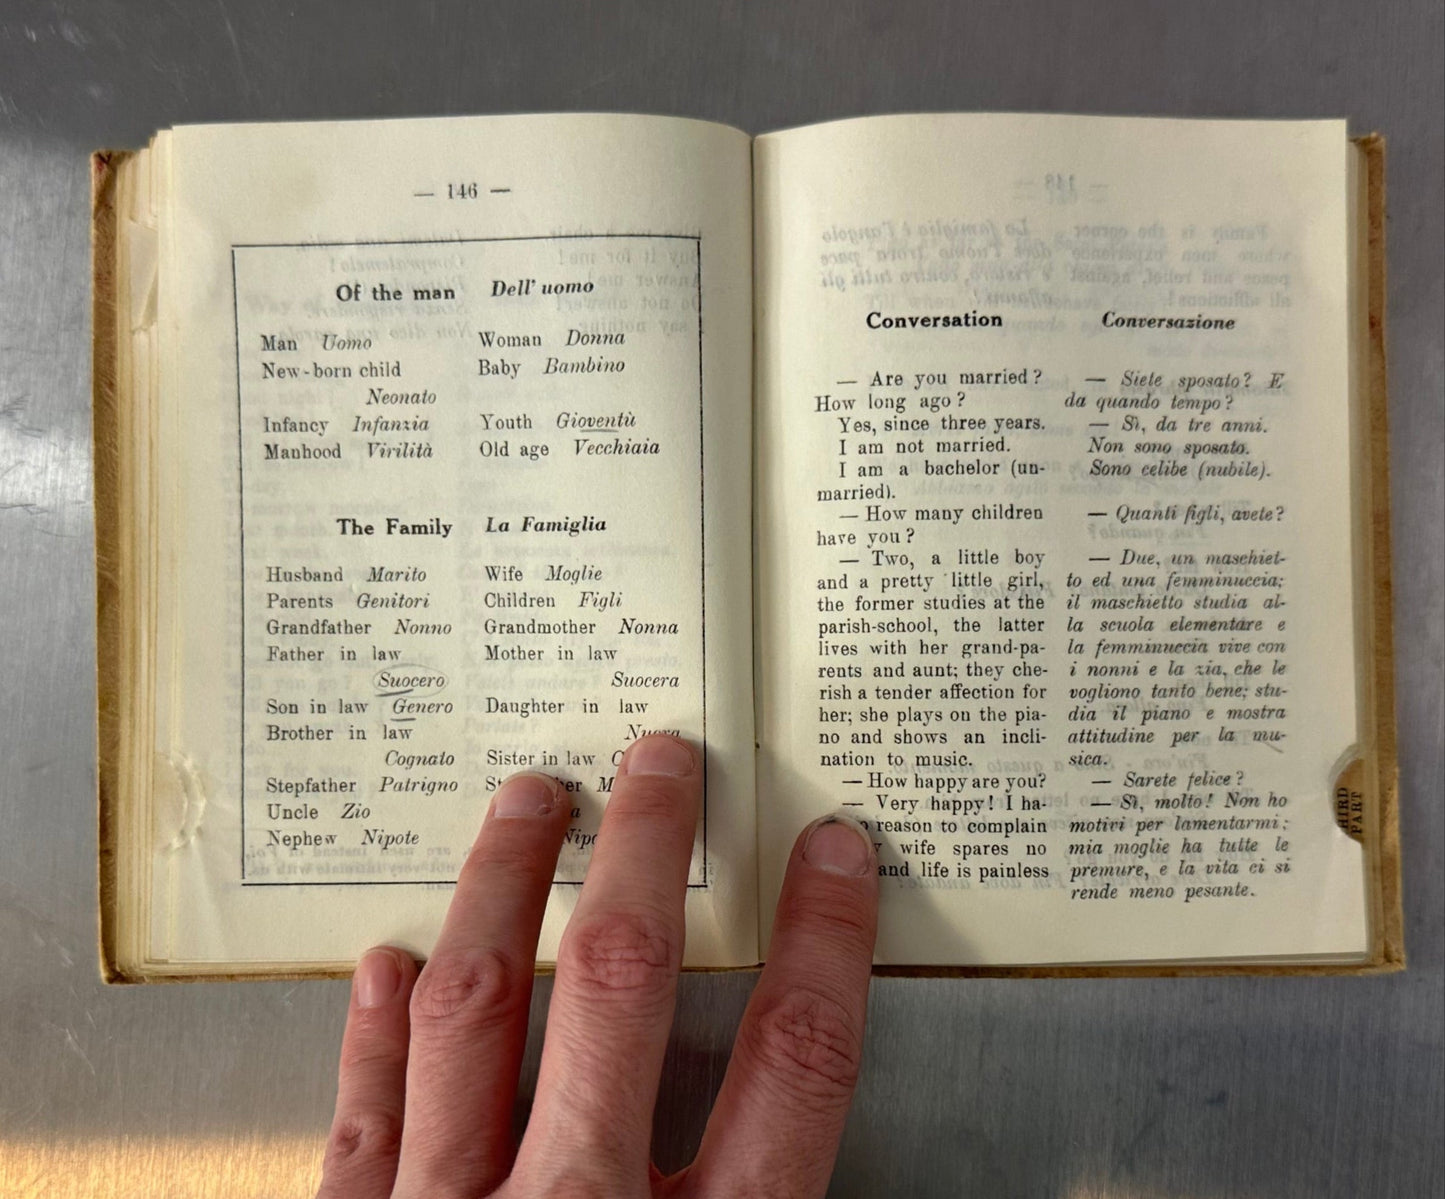 — 146 —
Of the man Dell' uomo
Man Uomo
Woman Donna
New-born child
Neonato
Baby Bambino
Infancy Infanzia
Youth Gioventù
Manhood Virilità
Old age Vecchiaia
The Family La Famiglia
Husband Marito
Wife Moglie
Parents Genitori
Children Figli
Grandfather Nonno
Grandmother Nonna
Father in law
Suocero
Mother in law
Suocera
Son in law Genero
Daughter in law
Brother in law
Cognato
Sister in law
Stepfather Patrigno
Uncle Zio
Nephew Nipote
Conversation
— Are you married?
How long ago?
Yes, since three years.
I am not married.
I am a bachelor (un-
married).
— How many children
have you?
— Two, a little boy
and a pretty little girl,
the former studies at the
parish-school, the latter
lives with her grand-pa-
rents and aunt; they che-
rish a tender affection for
her; she plays on the pia-
no and shows an incli-
nation to music.
— How happy are you?
— Very happy! I ha-
reason to complain
wife spares no
and life is painless
Conversazione
— Siete sposato? E
da quando tempo?
— Sì, da tre anni.
Non sono sposato.
Sono celibe (nubile).
— Quanti figli, avete?
— Due, un maschiet-
to ed una femminuccia;
il maschietto studia al-
la scuola elementare e
la femminuccia vive con
i nonni e la zia, che le
vogliono tanto bene; stu-
dia il piano e mostra
attitudine per la mu-
sica.
— Sarete felice?
— Sì, molto! Non ho
motivi per lamentarmi;
mia moglie ha tutte le
premure, e la vita ci si
rende meno pesante.
PART